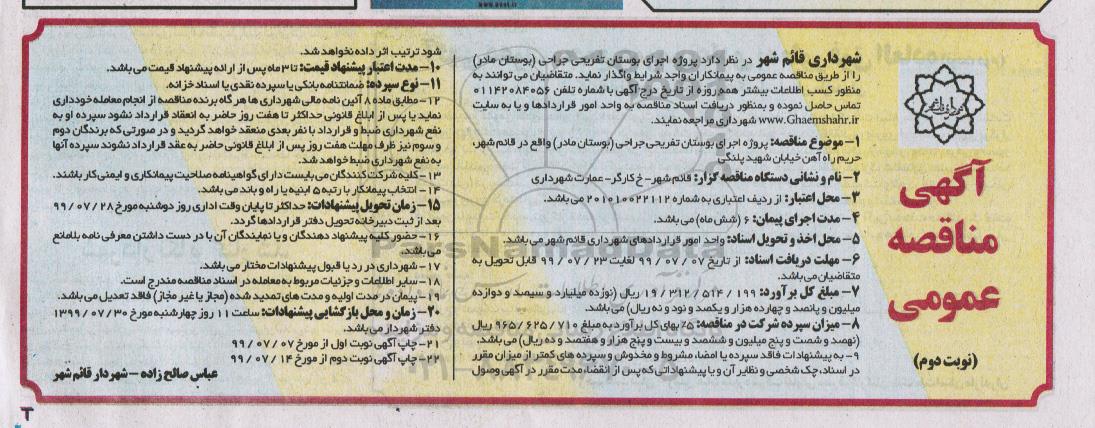 آگهی
مناقصه
عمومی
(نوبت دوم)
شهرداری قائم شهر در نظر دارد پروژه اجرای بوستان تفریحی جراحی (بوستان مادر)
را از طریق مناقصه عمومی به پیمانکاران واجد شرایط واگذار نماید. متقاضیان می توانند به
منظور کسب اطلاعات بیشتر همه روزه از تاریخ درج آگهی با شماره تلفن ۰۱۱۴۲۰۸۴۰۵۶
تماس حاصل نموده و بمنظور دریافت اسناد مناقصه به واحد امور قراردادها و یا به سایت
www.Ghaemshahr.ir شهرداری مراجعه نمایند.
۱- موضوع مناقصه: پروژه اجرای بوستان تفریحی جراحی (بوستان مادر) واقع در قائم شهر،
حریم راه آهن خیابان شهید پلنگی
۲- نام و نشانی دستگاه مناقصه گزار: قائم شهر- خ کارگر- عمارت شهرداری
۳- محل اعتبار: از ردیف اعتباری به شماره ۲۰۱۰۱۰۰۶۲۲۱۱۲ می باشد.
۴- مدت اجرای پیمان: ۶ (شش ماه) می باشد.
۵- محل اخذ و تحویل اسناد: واحد امور قراردادهای شهرداری قائم شهر می باشد.
۶- مهلت دریافت اسناد: از تاریخ ۰۷ / ۰۷ / ۹۹ لغایت ۲۳ / ۰۷ / ۹۹ قابل تحویل به
متقاضیان می باشد.
۷- مبلغ کل برآورد: ۱۹۹ / ۵۱۴ / ۳۱۲ / ۱۹ ریال (نوزده میلیارد و سیصد و دوازده
میلیون و پانصد و چهارده هزار و یکصد و نود و نه ریال) می باشد.
۸- میزان سپرده شرکت در مناقصه: ۵٪ بهای کل برآورد به مبلغ ۷۱۰ / ۶۲۵ / ۹۶۵ ریال
(نهصد و شصت و پنج میلیون و ششصد و بیست و پنج هزار و هفتصد و ده ریال) می باشد.
۹- به پیشنهادات فاقد سپرده یا امضا، مشروط و مخدوش و سپرده های کمتر از میزان مقرر
در اسناد، چک شخصی و نظایر آن و یا پیشنهاداتی که پس از انقضاء مدت مقرر در آگهی وصول
شود ترتیب اثر داده نخواهد شد.
۱۰- مدت اعتبار پیشنهاد قیمت: تا ۳ ماه پس از ارائه پیشنهاد قیمت می باشد.
۱۱- نوع سپرده: ضمانتنامه بانکی یا سپرده نقدی یا اسناد خزانه.
۱۲- مطابق ماده ۸ آئین نامه مالی شهرداری ها هر گاه برنده مناقصه از انجام معامله خودداری
نماید یا پس از ابلاغ قانونی حداکثر تا هفت روز حاضر به انعقاد قرارداد نشود سپرده او به
نفع شهرداری ضبط و قرارداد با نفر بعدی منعقد خواهد گردید و در صورتی که برندگان دوم
و سوم نیز ظرف مهلت هفت روز پس از ابلاغ قانونی حاضر به عقد قرارداد نشوند سپرده آنها
به نفع شهرداری ضبط خواهد شد.
۱۳- کلیه شرکت کنندگان می بایست دارای گواهینامه صلاحیت پیمانکاری و ایمنی کار باشند.
۱۴- انتخاب پیمانکار با رتبه ۵ ابنیه یا راه و باند می باشد.
۱۵- زمان تحویل پیشنهادات: حداکثر تا پایان وقت اداری روز دوشنبه مورخ ۲۸ / ۰۷ / ۹۹
بعد از ثبت دبیرخانه تحویل دفتر قراردادها گردد.
۱۶- حضور کلیه پیشنهاد دهندگان و یا نمایندگان آن با در دست داشتن معرفی نامه بلامانع
می باشد.
۱۷- شهرداری در رد یا قبول پیشنهادات مختار می باشد.
۱۸- سایر اطلاعات و جزئیات مربوط به معامله در اسناد مناقصه مندرج است.
۱۹- پیمان در مدت اولیه و مدت های تمدید شده (مجاز یا غیر مجاز) فاقد تعدیل می باشد.
۲۰- زمان و محل بازگشایی پیشنهادات: ساعت ۱۱ روز چهارشنبه مورخ ۳۰ / ۰۷ / ۱۳۹۹
دفتر شهردار می باشد.
۲۱- چاپ آگهی نوبت اول از مورخ ۰۷ / ۰۷ / ۹۹
۲۲- چاپ آگهی نوبت دوم از مورخ ۱۴ / ۰۷ / ۹۹
عباس صالح زاده - شهردار قائم شهر